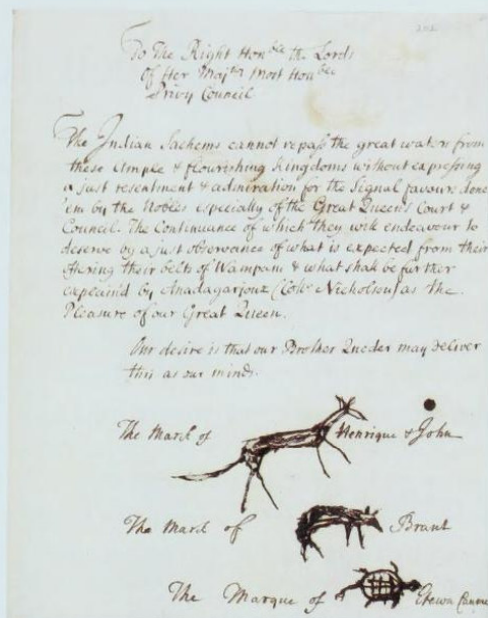 To The Right Honble the Lords
Of Her Majties most Honble
Privy Council
The Indian Sachems cannot repass the great waters from
these Ample & flourishing Kingdoms without expressing
a just resentment & admiration for the Signal favours done
'em by the Nobles especially of the Great Queens Court &
Council. The Continuance of which they will endeavour to
deserve by a just observance of what is expected from their
offering their belts of Wampum & what shall be further
explain'd by Anadagarjoux (Collo Nicholson) as the
Pleasure of our Great Queen.
Our desire is that our Brother Queder may deliver
this as our minds.
The Mark of Henrique & John
The Mark of Brant
The Marque of Etewn Caume